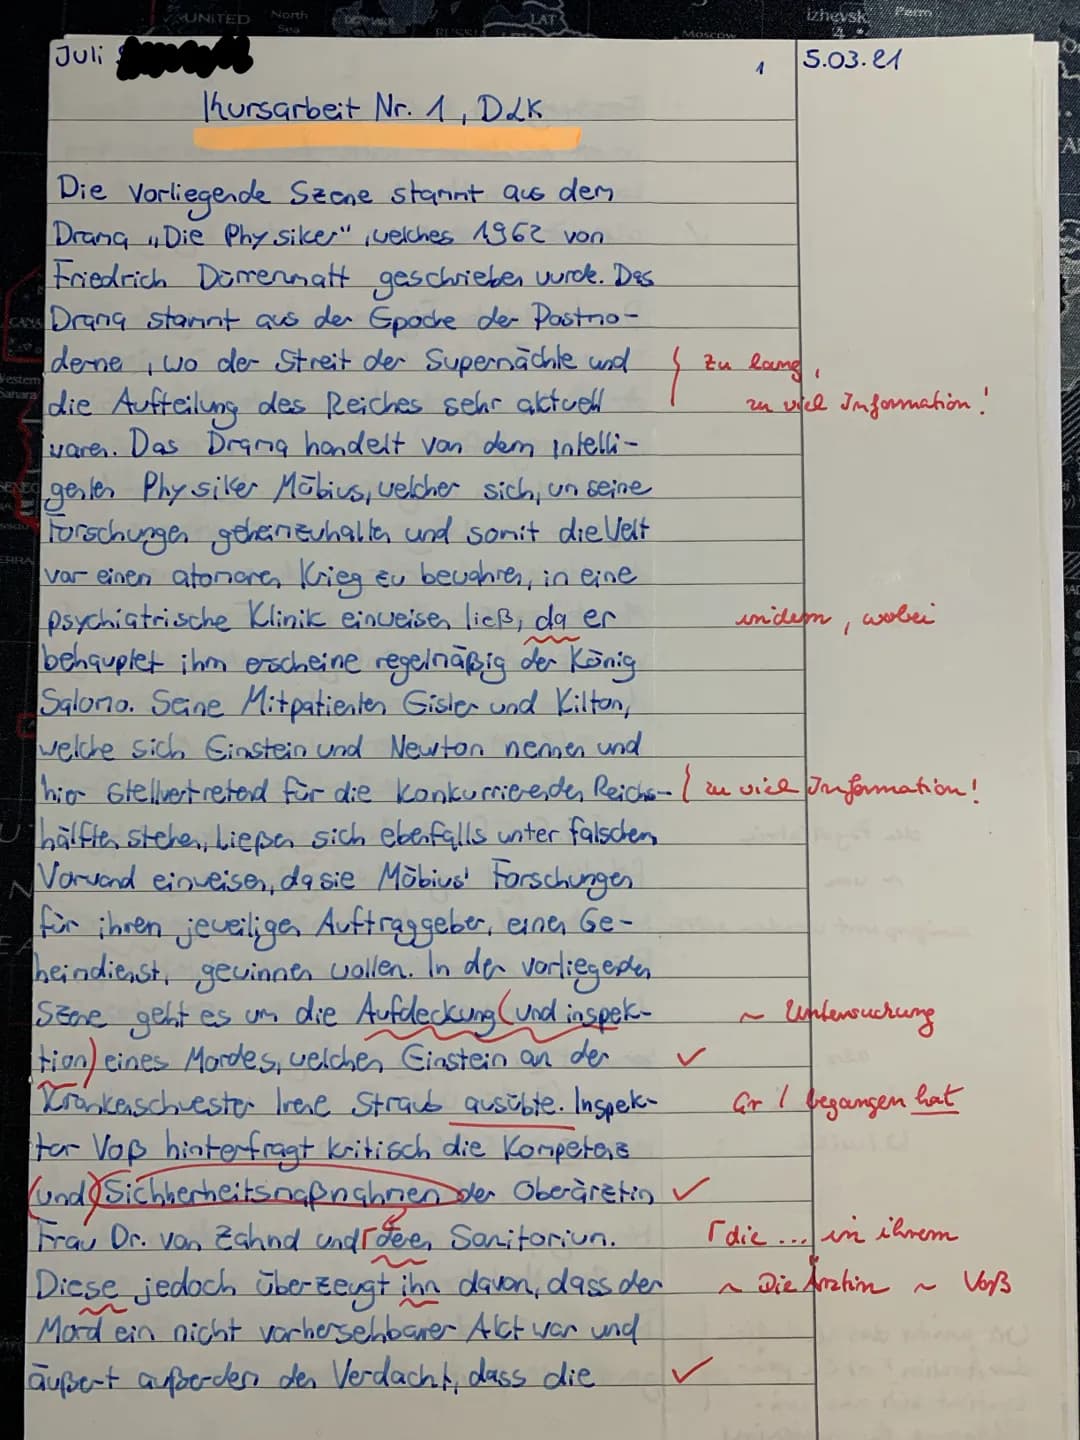 UNITED
North
Sea
DENMARK
LAT
Moscow
izhevsk
Perm
Juli
1
5.03.21
Kursarbeit Nr. 1, DLK
Die vorliegende Szene stammt aus dem
Drama „Die Physiker", welches 1962 von
Friedrich Dürrenmatt geschrieben wurde. Das
Drama stammt aus der Epoche der Postmo-
derne, wo der Streit der Supermächte und
zu lang,
die Aufteilung des Reiches sehr aktuell
zu viel Information!
waren. Das Drama handelt von dem intelli-
genten Physiker Möbius, welcher sich, um seine
Forschungen geheimzuhalten und somit die Welt
vor einem atomaren Krieg zu bewahren, in eine
psychiatrische Klinik einweisen ließ, da er
indem, wobei
behauptet ihm erscheine regelmäßig der König
Salomo. Seine Mitpatienten Eisler und Kilton,
welche sich Einstein und Newton nennen und
hier stellvertretend für die konkurrierenden Reichs-
zu viel Information!
hälften stehen, ließen sich ebenfalls unter falschem
Vorwand einweisen, da sie Möbius' Forschungen
für ihren jeweiligen Auftraggeber, einen Ge-
heimdienst, gewinnen wollen. In der vorliegenden
Szene geht es um die Aufdeckung (und inspek-
~ Untersuchung
tion) eines Mordes, welchen Einstein an der
Krankenschwester Irene Straub ausübte. Inspek-
Gr / begangen hat
tor Voß hinterfragt kritisch die Kompetenz
(und) Sichherheitsmaßnahmen der Oberärztin
Frau Dr. von Zahnd und deren Sanitorium.
die ... in ihrem
Diese jedoch überzeugt ihn davon, dass der
~ Die Ärztin ~ Voß
Mord ein nicht vorhersehbarer Akt war und
äußert außerdem den Verdacht, dass die